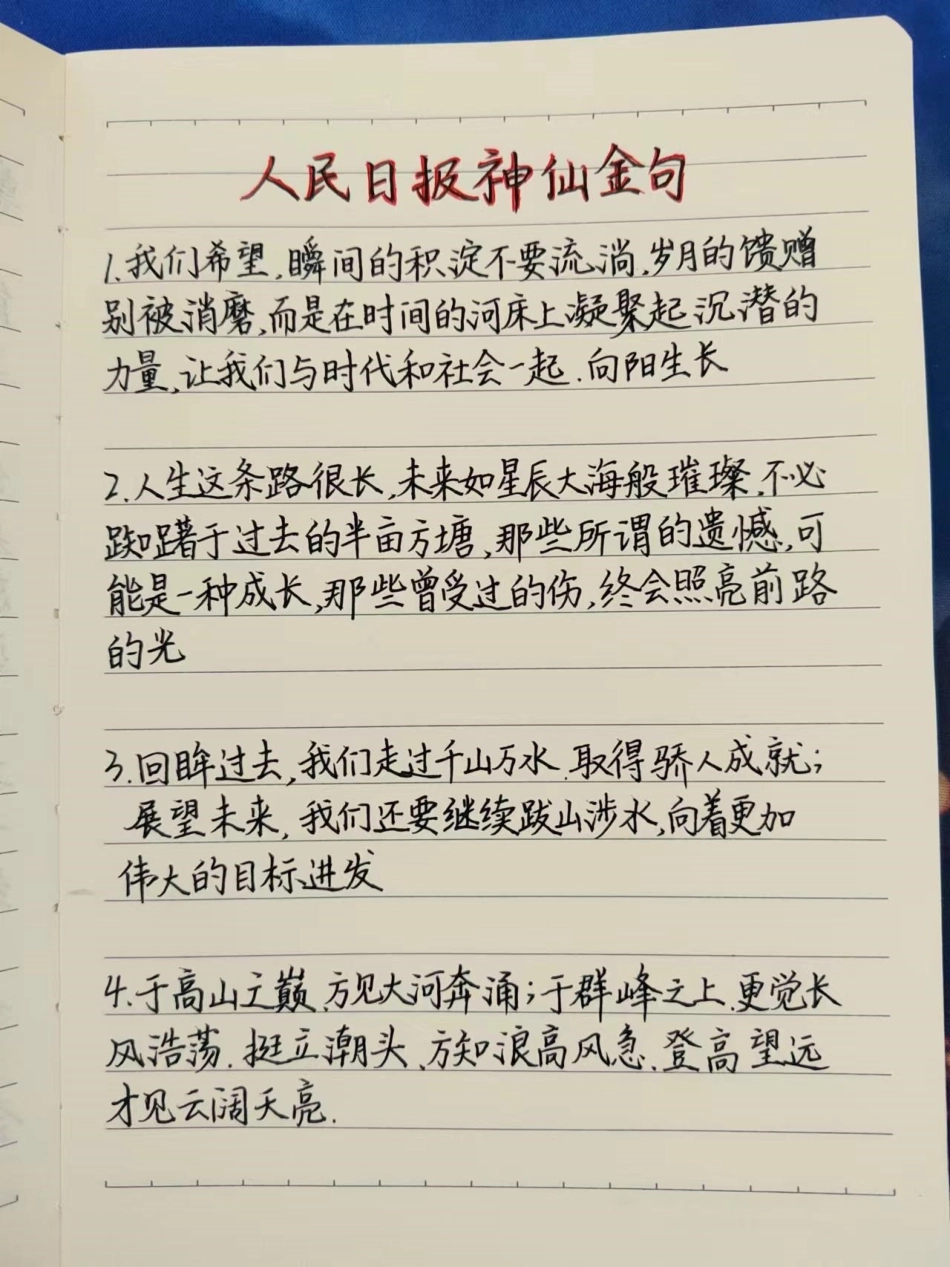 人民日报神仙金句
1.我们希望,瞬间的积淀不要流淌,岁月的馈赠
别被消磨,而是在时间的河床上凝聚起沉潜的
力量,让我们与时代和社会一起.向阳生长
2.人生这条路很长,未来如星辰大海般璀璨.不必
踟躇于过去的半亩方塘,那些所谓的遗憾,可
能是一种成长,那些曾受过的伤,终会照亮前路
的光
3.回眸过去,我们走过千山万水.取得骄人成就;
展望未来,我们还要继续跋山涉水,向着更加
伟大的目标进发
4.于高山之巅、方见大河奔涌;于群峰之上.更觉长
风浩荡.挺立潮头、方知浪高风急.登高望远
才见云阔天亮.